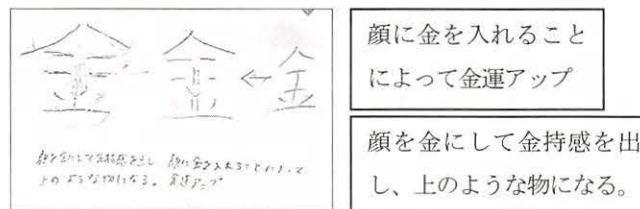 金 金 ← 金
顔を金にして金持感を出し
上のような物になる。
顔に金を入れることによって
金運アップ
顔に金を入れること
によって金運アップ
顔を金にして金持感を出
し、上のような物になる。